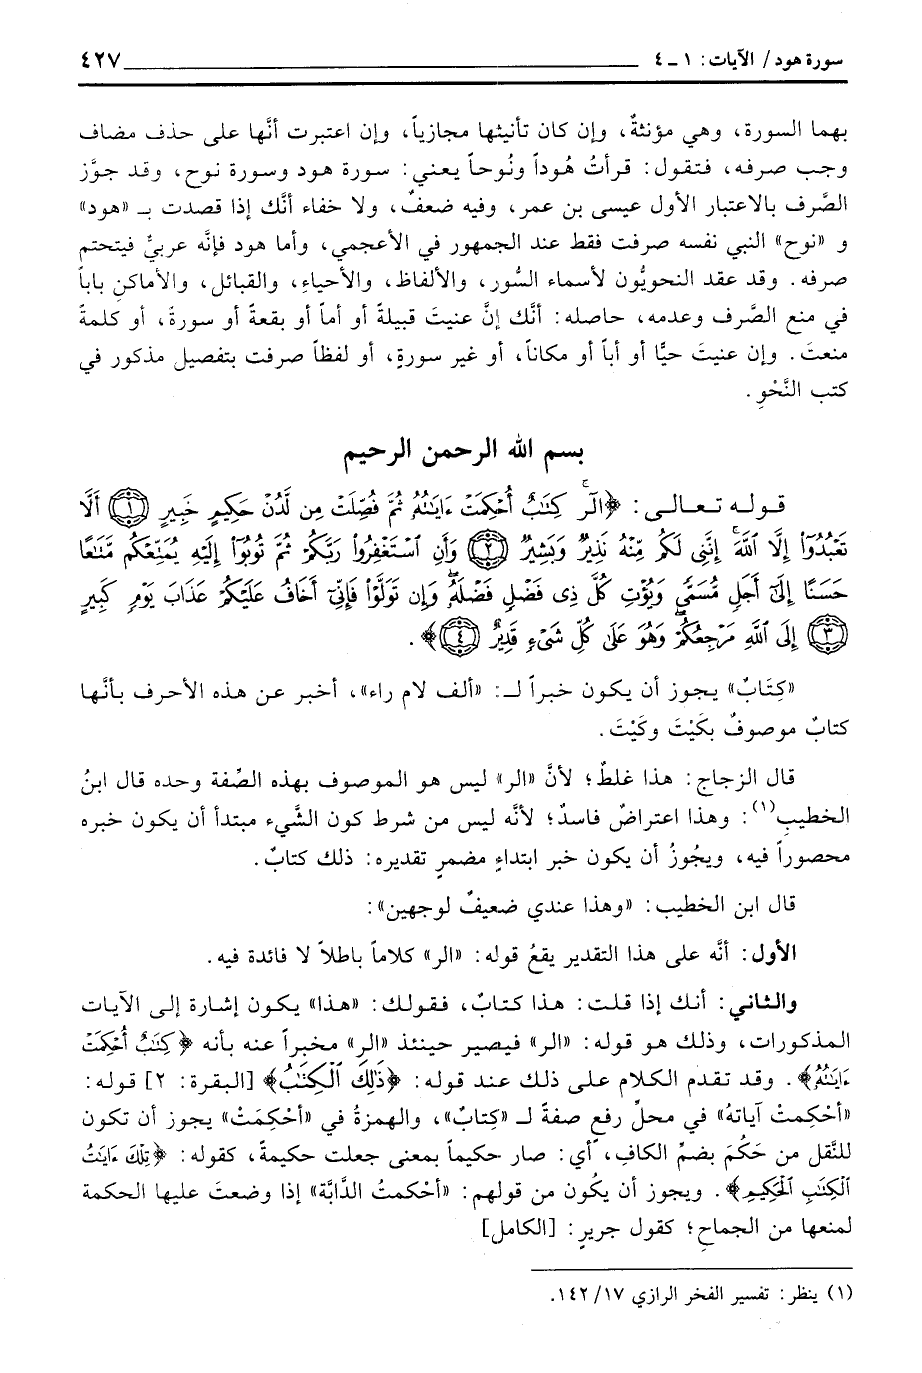 سورة هود/ الآيات: ١ - ٤ ٤٢٧
بهما السورة، وهي مؤنثةٌ، وإن كان تأنيثها مجازياً، وإن اعتبرت أنَّها على حذف مضاف
وجب صرفه، فتقول: قرأتُ هُوداً ونُوحاً يعني: سورة هود وسورة نوح، وقد جوَّز
الصَّرف بالاعتبار الأول عيسى بن عمر، وفيه ضعفٌ، ولا خفاء أنَّك إذا قصدت بـ «هود»
و «نوح» النبي نفسه صرفت فقط عند الجمهور في الأعجمي، وأما هود فإنَّه عربيٌّ فيتحتم
صرفه. وقد عقد النحويُّون لأسماء السُّور، والألفاظ، والأحياءِ، والقبائل، والأماكنِ باباً
في منع الصَّرف وعدمه، حاصله: أنَّك إنَّ عنيتَ قبيلةً أو أماً أو بقعةً أو سورةً، أو كلمةً
منعتَ. وإن عنيتَ حيًّا أو أباً أو مكاناً، أو غير سورةٍ، أو لفظاً صرفت بتفصيل مذكور في
كتب النَّحْوِ.
بسم الله الرحمن الرحيم
قوله تعالى: ﴿الٓرۚ كِتَٰبٌ أُحۡكِمَتۡ ءَايَٰتُهُۥ ثُمَّ فُصِّلَتۡ مِن لَّدُنۡ حَكِيمٍ خَبِيرٍ ﴿١﴾ أَلَّا
تَعۡبُدُوٓاْ إِلَّا ٱللَّهَۚ إِنَّنِي لَكُم مِّنۡهُ نَذِيرٞ وَبَشِيرٞ ﴿٢﴾ وَأَنِ ٱسۡتَغۡفِرُواْ رَبَّكُمۡ ثُمَّ تُوبُوٓاْ إِلَيۡهِ يُمَتِّعۡكُم مَّتَٰعًا
حَسَنًا إِلَىٰٓ أَجَلٖ مُّسَمّٗى وَيُؤۡتِ كُلَّ ذِي فَضۡلٖ فَضۡلَهُۥۖ وَإِن تَوَلَّوۡاْ فَإِنِّيٓ أَخَافُ عَلَيۡكُمۡ عَذَابَ يَوۡمٖ كَبِيرٍ
﴿٣﴾ إِلَى ٱللَّهِ مَرۡجِعُكُمۡۖ وَهُوَ عَلَىٰ كُلِّ شَيۡءٖ قَدِيرٌ ﴿٤﴾﴾.
«كِتَابٌ» يجوز أن يكون خبراً لـ: «ألف لام راء»، أخبر عن هذه الأحرف بأنَّها
كتابٌ موصوفٌ بكَيْتَ وكَيْتَ.
قال الزجاج: هذا غلطٌ؛ لأنَّ «الر» ليس هو الموصوف بهذه الصِّفة وحده قال ابنُ
الخطيبِ(١): وهذا اعتراضٌ فاسدٌ؛ لأنَّه ليس من شرط كون الشَّيء مبتدأ أن يكون خبره
محصوراً فيه، ويجُوزُ أن يكون خبر ابتداءٍ مضمرٍ تقديره: ذلك كتابٌ.
قال ابن الخطيب: «وهذا عندي ضعيفٌ لوجهين»:
الأول: أنَّه على هذا التقدير يقعُ قوله: «الر» كلاماً باطلاً لا فائدة فيه.
والثاني: أنك إذا قلت: هذا كتابٌ، فقولك: «هذا» يكون إشارة إلى الآيات
المذكورات، وذلك هو قوله: «الر» فيصير حينئذ «الر» مخبراً عنه بأنه ﴿كِتَٰبٌ أُحۡكِمَتۡ
ءَايَٰتُهُۥ﴾. وقد تقدم الكلام على ذلك عند قوله: ﴿ذَٰلِكَ ٱلۡكِتَٰبُ﴾ [البقرة: ٢] قوله:
«أحْكمتْ آياتهُ» في محلِّ رفعٍ صفةً لـ «كِتابٌ»، والهمزةُ في «أحْكِمَتْ» يجوز أن تكون
للنَّقل من حَكُمَ بضمِّ الكافِ، أي: صار حكيماً بمعنى جعلت حكيمةً، كقوله: ﴿تِلۡكَ ءَايَٰتُ
ٱلۡكِتَٰبِ ٱلۡحَكِيمِ﴾. ويجوز أن يكُون من قولهم: «أحْكمتُ الدَّابَّة» إذا وضعتَ عليها الحكمة
لمنعها من الجماحِ؛ كقول جريرٍ: [الكامل]
(١) ينظر: تفسير الفخر الرازي ١٧/ ١٤٢.